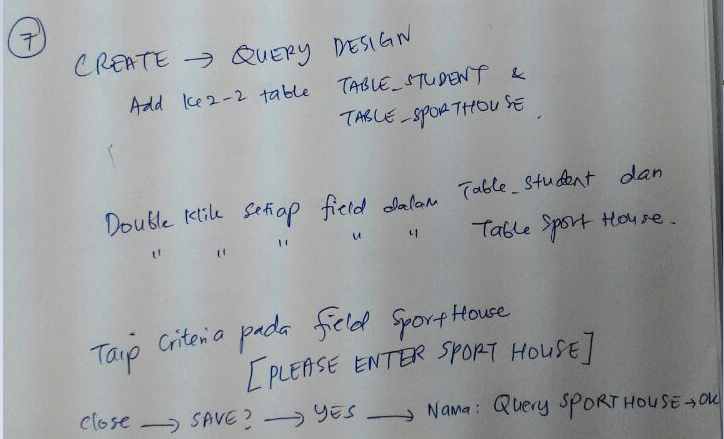 7
CREATE → QUERY DESIGN
Add ke2-2 table TABLE_STUDENT &
TABLE_SPORTHOUSE.
Double klik setiap field dalam Table_Student dan
" " " " " Table Sport House.
Taip criteria pada field SportHouse
[PLEASE ENTER SPORT HOUSE]
close → SAVE? → YES → Nama: Query SPORTHOUSE → OK